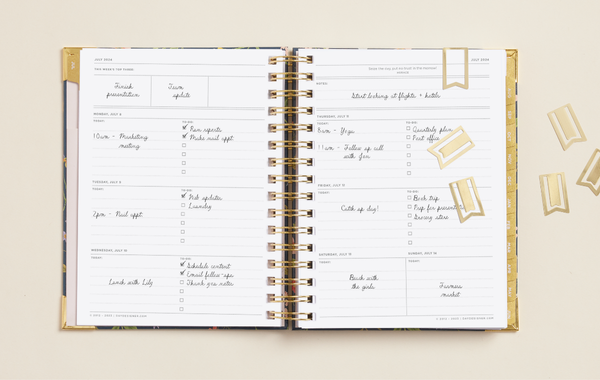 JULY 2024
THIS WEEK'S TOP PLANS:
Finish
presentation
Team
update
MONDAY, JULY 8
TODAY:
TO DO:
10am - Marketing
meeting
Run reports
Make nail appt.
TUESDAY, JULY 9
TODAY:
TO DO:
2pm - Nail appt.
Web updates
Laundry
WEDNESDAY, JULY 10
TODAY:
TO DO:
Lunch with Lily
Schedule content
Email follow-ups
Thank you notes
JULY 2024
NOTES:
Start looking at flights + hotels
THURSDAY, JULY 11
TODAY:
TO DO:
8am - Yoga
11am - Follow up call
with Jen
Quarterly plan
Post office
FRIDAY, JULY 12
TODAY:
TO DO:
Catch up day!
Book trip
Prep for
Grocery store
SATURDAY, JULY 13
TODAY:
Beach with
the girls
SUNDAY, JULY 14
TODAY:
Farmers
market